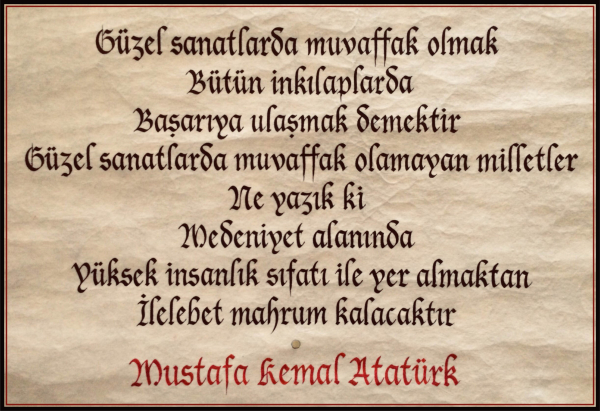 Güzel sanatlarda muvaffak olmak
Bütün inkılaplarda
Başarıya ulaşmak demektir
Güzel sanatlarda muvaffak olamayan milletler
Ne yazık ki
Medeniyet alanında
Yüksek insanlık sıfatı ile yer almaktan
İlelebet mahrum kalacaktır
Mustafa Kemal Atatürk